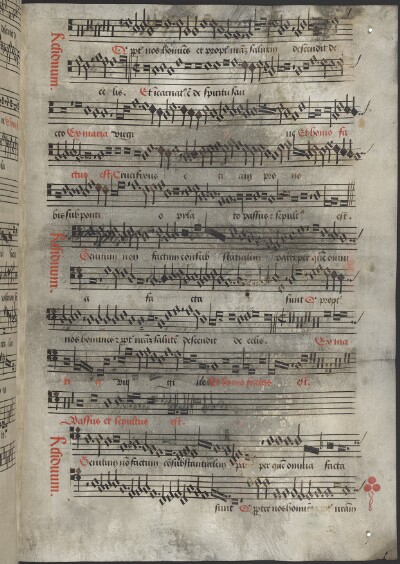 Residuum.
Qui propt' nos homines et propt' nr̄am salutem descendit de
celis. Et īcarnat' ē de spiritu san
cto Ex maria virgi ne Et homo fa
ctus est Crucifixus e ti am pro no
bis sub ponti o pyla to passus: sepult' est.
Residuum.
Genitum non factum consub stantialem patri per quē omni
a fa cta sunt Q propt'
nos homines: ꝓpt' nr̄am salutē descendit de celis. Ex ma
ri a vir gi ne Et homo factus est.
Passus et sepultus est.
Residuum.
Genitum nō factum cōsubstantialem pa per quē omnia facta
sunt Q propter nos homines nr̄am